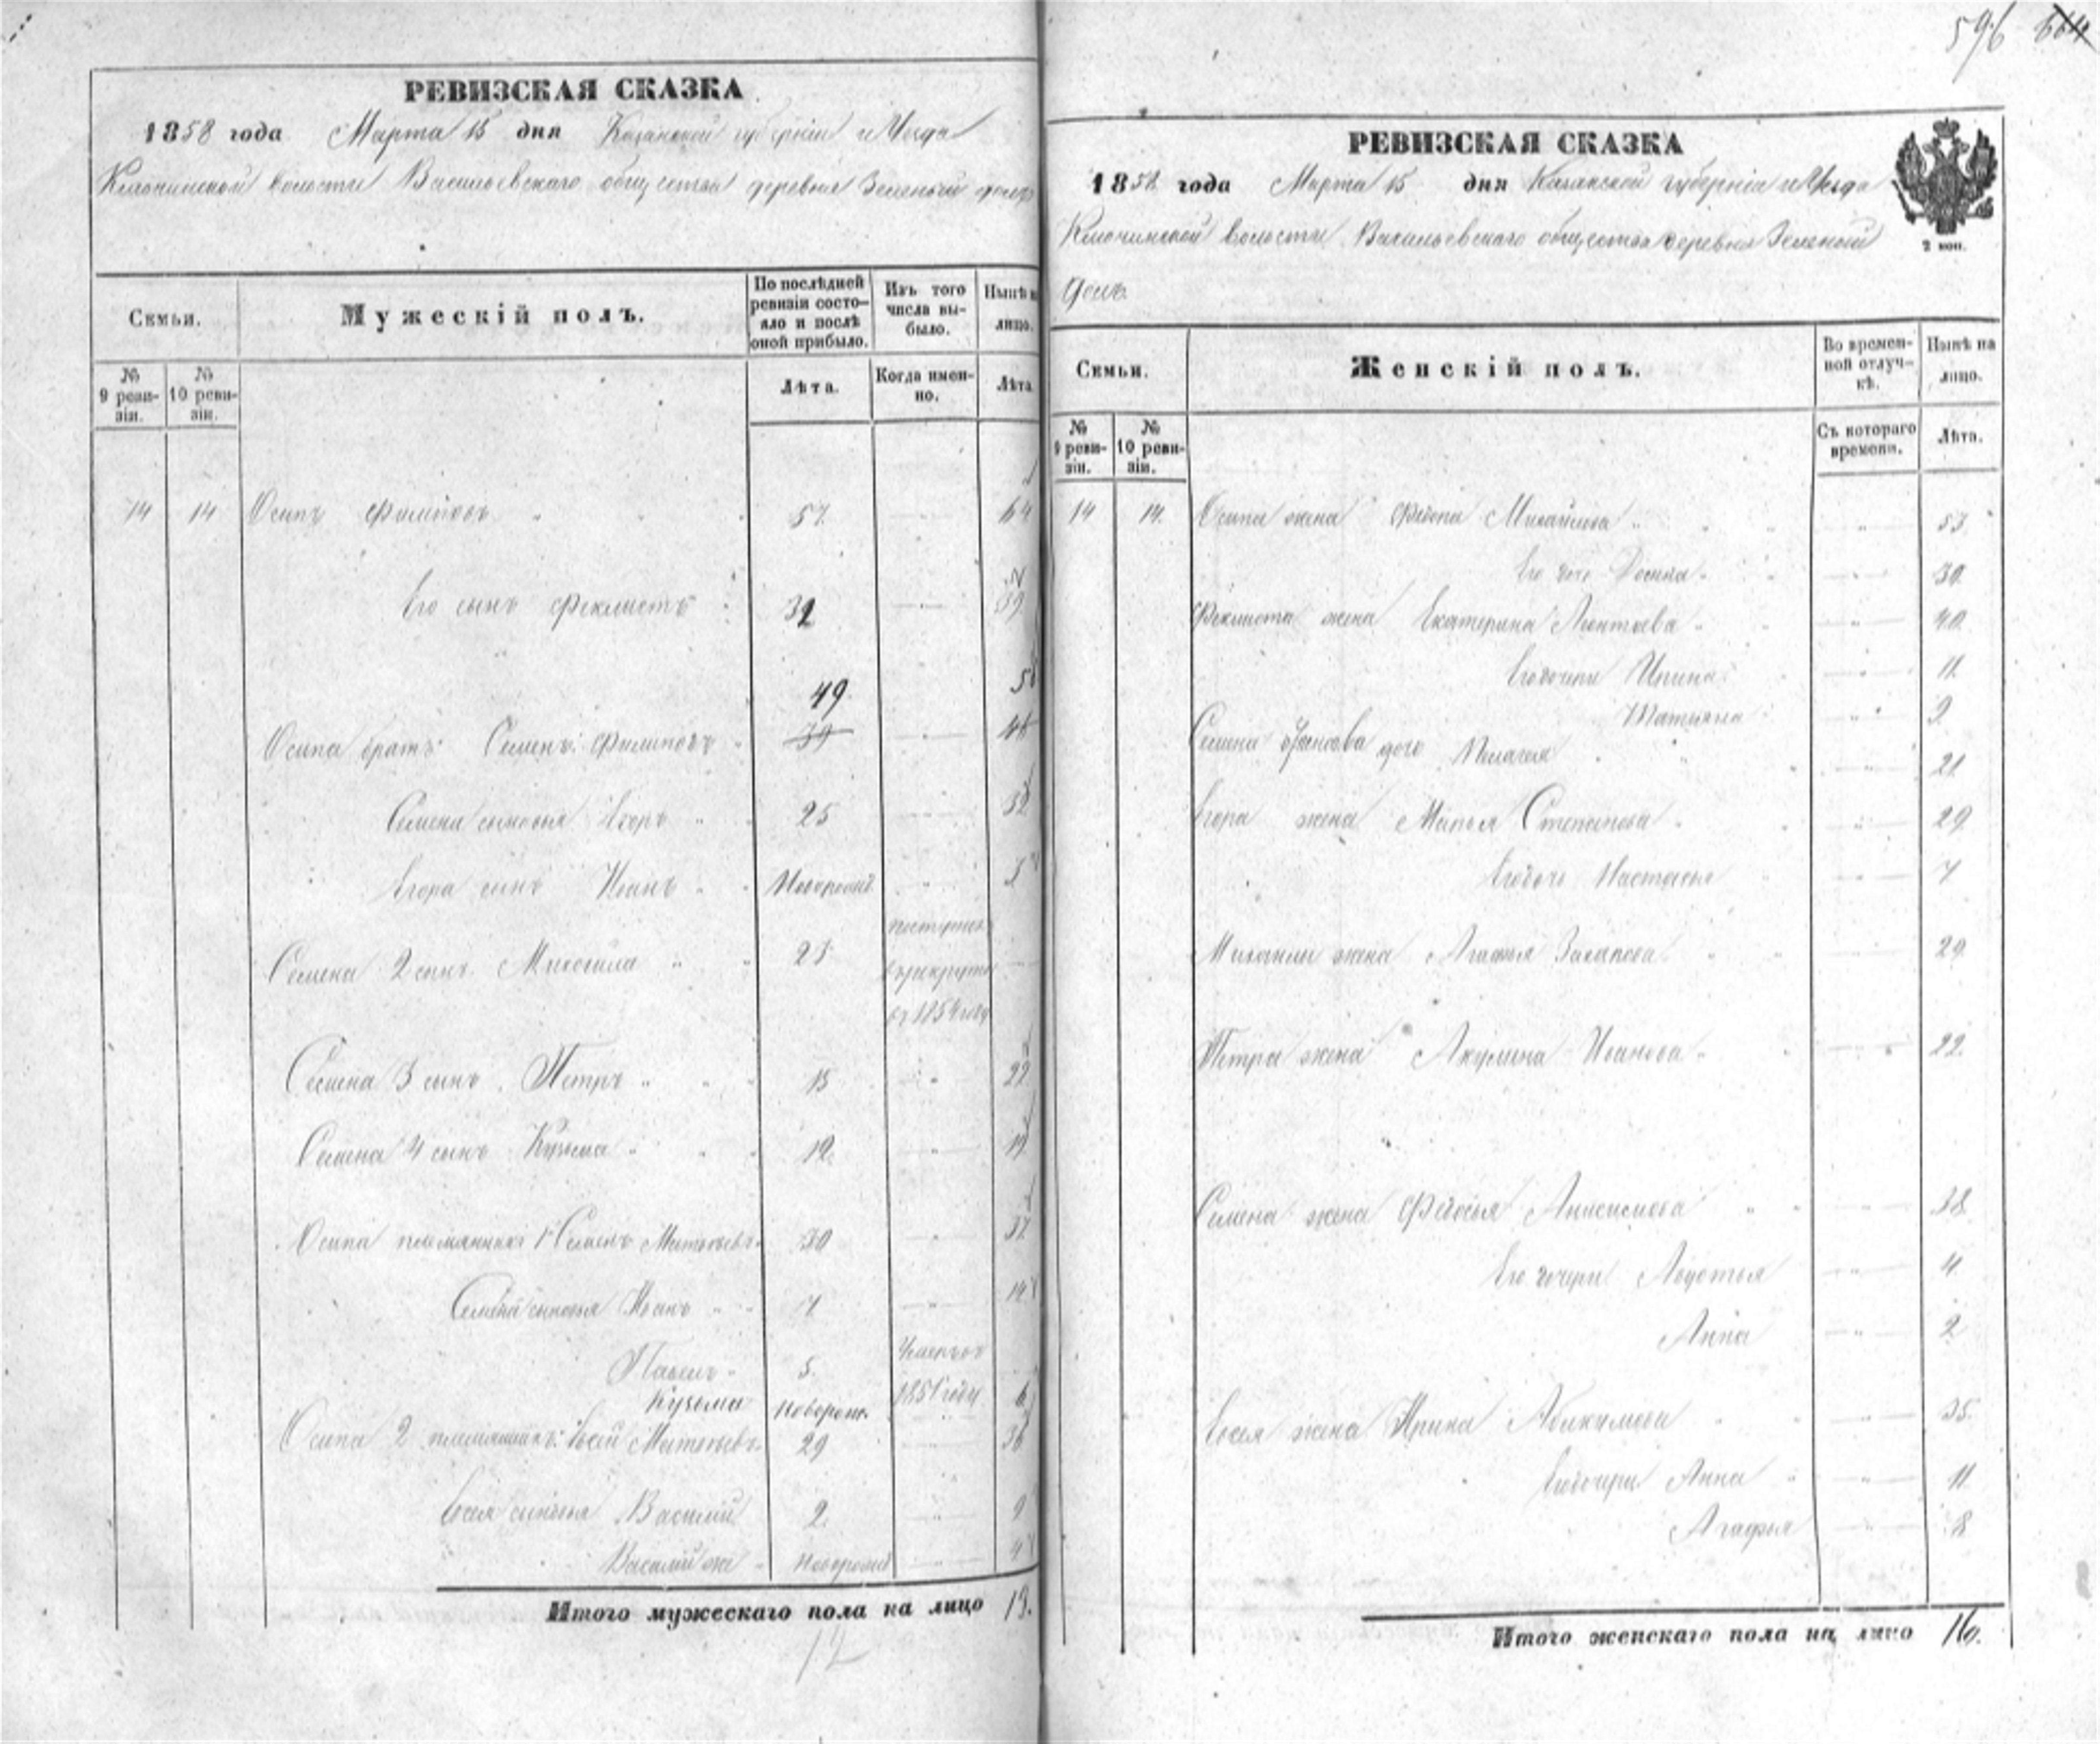 РЕВИЗСКАЯ СКАЗКА
1858 года Марта 15 дня Казанской губернии и Уезда
Ключинской волости Васильевскаго общества деревня Зеленый долъ
Семьи.
Мужескій полъ.
По послѣдней ревизіи состо-
яло и послѣ
оной прибыло.
Изъ того
числа вы-
было.
Нынѣ на
лицо.
№
9 реви-
зіи.
№
10 реви-
зіи.
Лѣта.
Когда имен-
но.
Лѣта.
14 14 Осипъ Филиповъ 57 64
Его сынъ Феклистъ 32 39
49
Осипа братъ Семенъ Филиповъ 39 46
Семена сыновья Егоръ 25 32
Егора сынъ Иванъ Новорожд. 3
Семена 2 сынъ Михайла 23 поступилъ
в рекруты
въ 1854 году
Семена 3 сынъ Петръ 15 22
Семена 4 сынъ Кузьма 12 19
Осипа племянники 1й Семенъ Матвѣевъ 30 37
Семена сыновья Иванъ 7 14
Павелъ 5 Умеръ въ
1851 году
Кузьма новорож. 6
Осипа 2 племянникъ Евсей Матвѣевъ 29 36
Евсея сыновья Василій 2 9
Василій же новорожд 4
Итого мужескаго пола на лицо 13.
12
596 664
РЕВИЗСКАЯ СКАЗКА
1858 года Марта 15 дня Казанской губерніи и Уѣзда
Ключинской волости Васильевскаго общества деревня Зеленый
долъ
2 коп.
Семьи.
Женскій полъ.
Во времен-
ной отлуч-
кѣ.
Нынѣ на
лицо.
№
9 реви-
зіи.
№
10 реви-
зіи.
Съ котораго
времени.
Лѣта.
14 14. Осипа жена Михайлова 53
Его дочь 30
Феклиста жена Екатерина Леонтьева 40
Его дочери Ирина 11
Татьяна 9
Семена дочь Пелагея 21
Егора жена Марья Степанова 29
Его дочь Настасья 7
Михайлы жена Агафья Захарова 29
Петра жена Акулина Иванова 22
Семена жена Федосья Анисимова 38
Его дочери Авдотья 4
Анна 2
Евсея жена Ирина Абакумова 35
Его дочери Анна 11
Агафья 8
Итого женскаго пола на лицо 16.